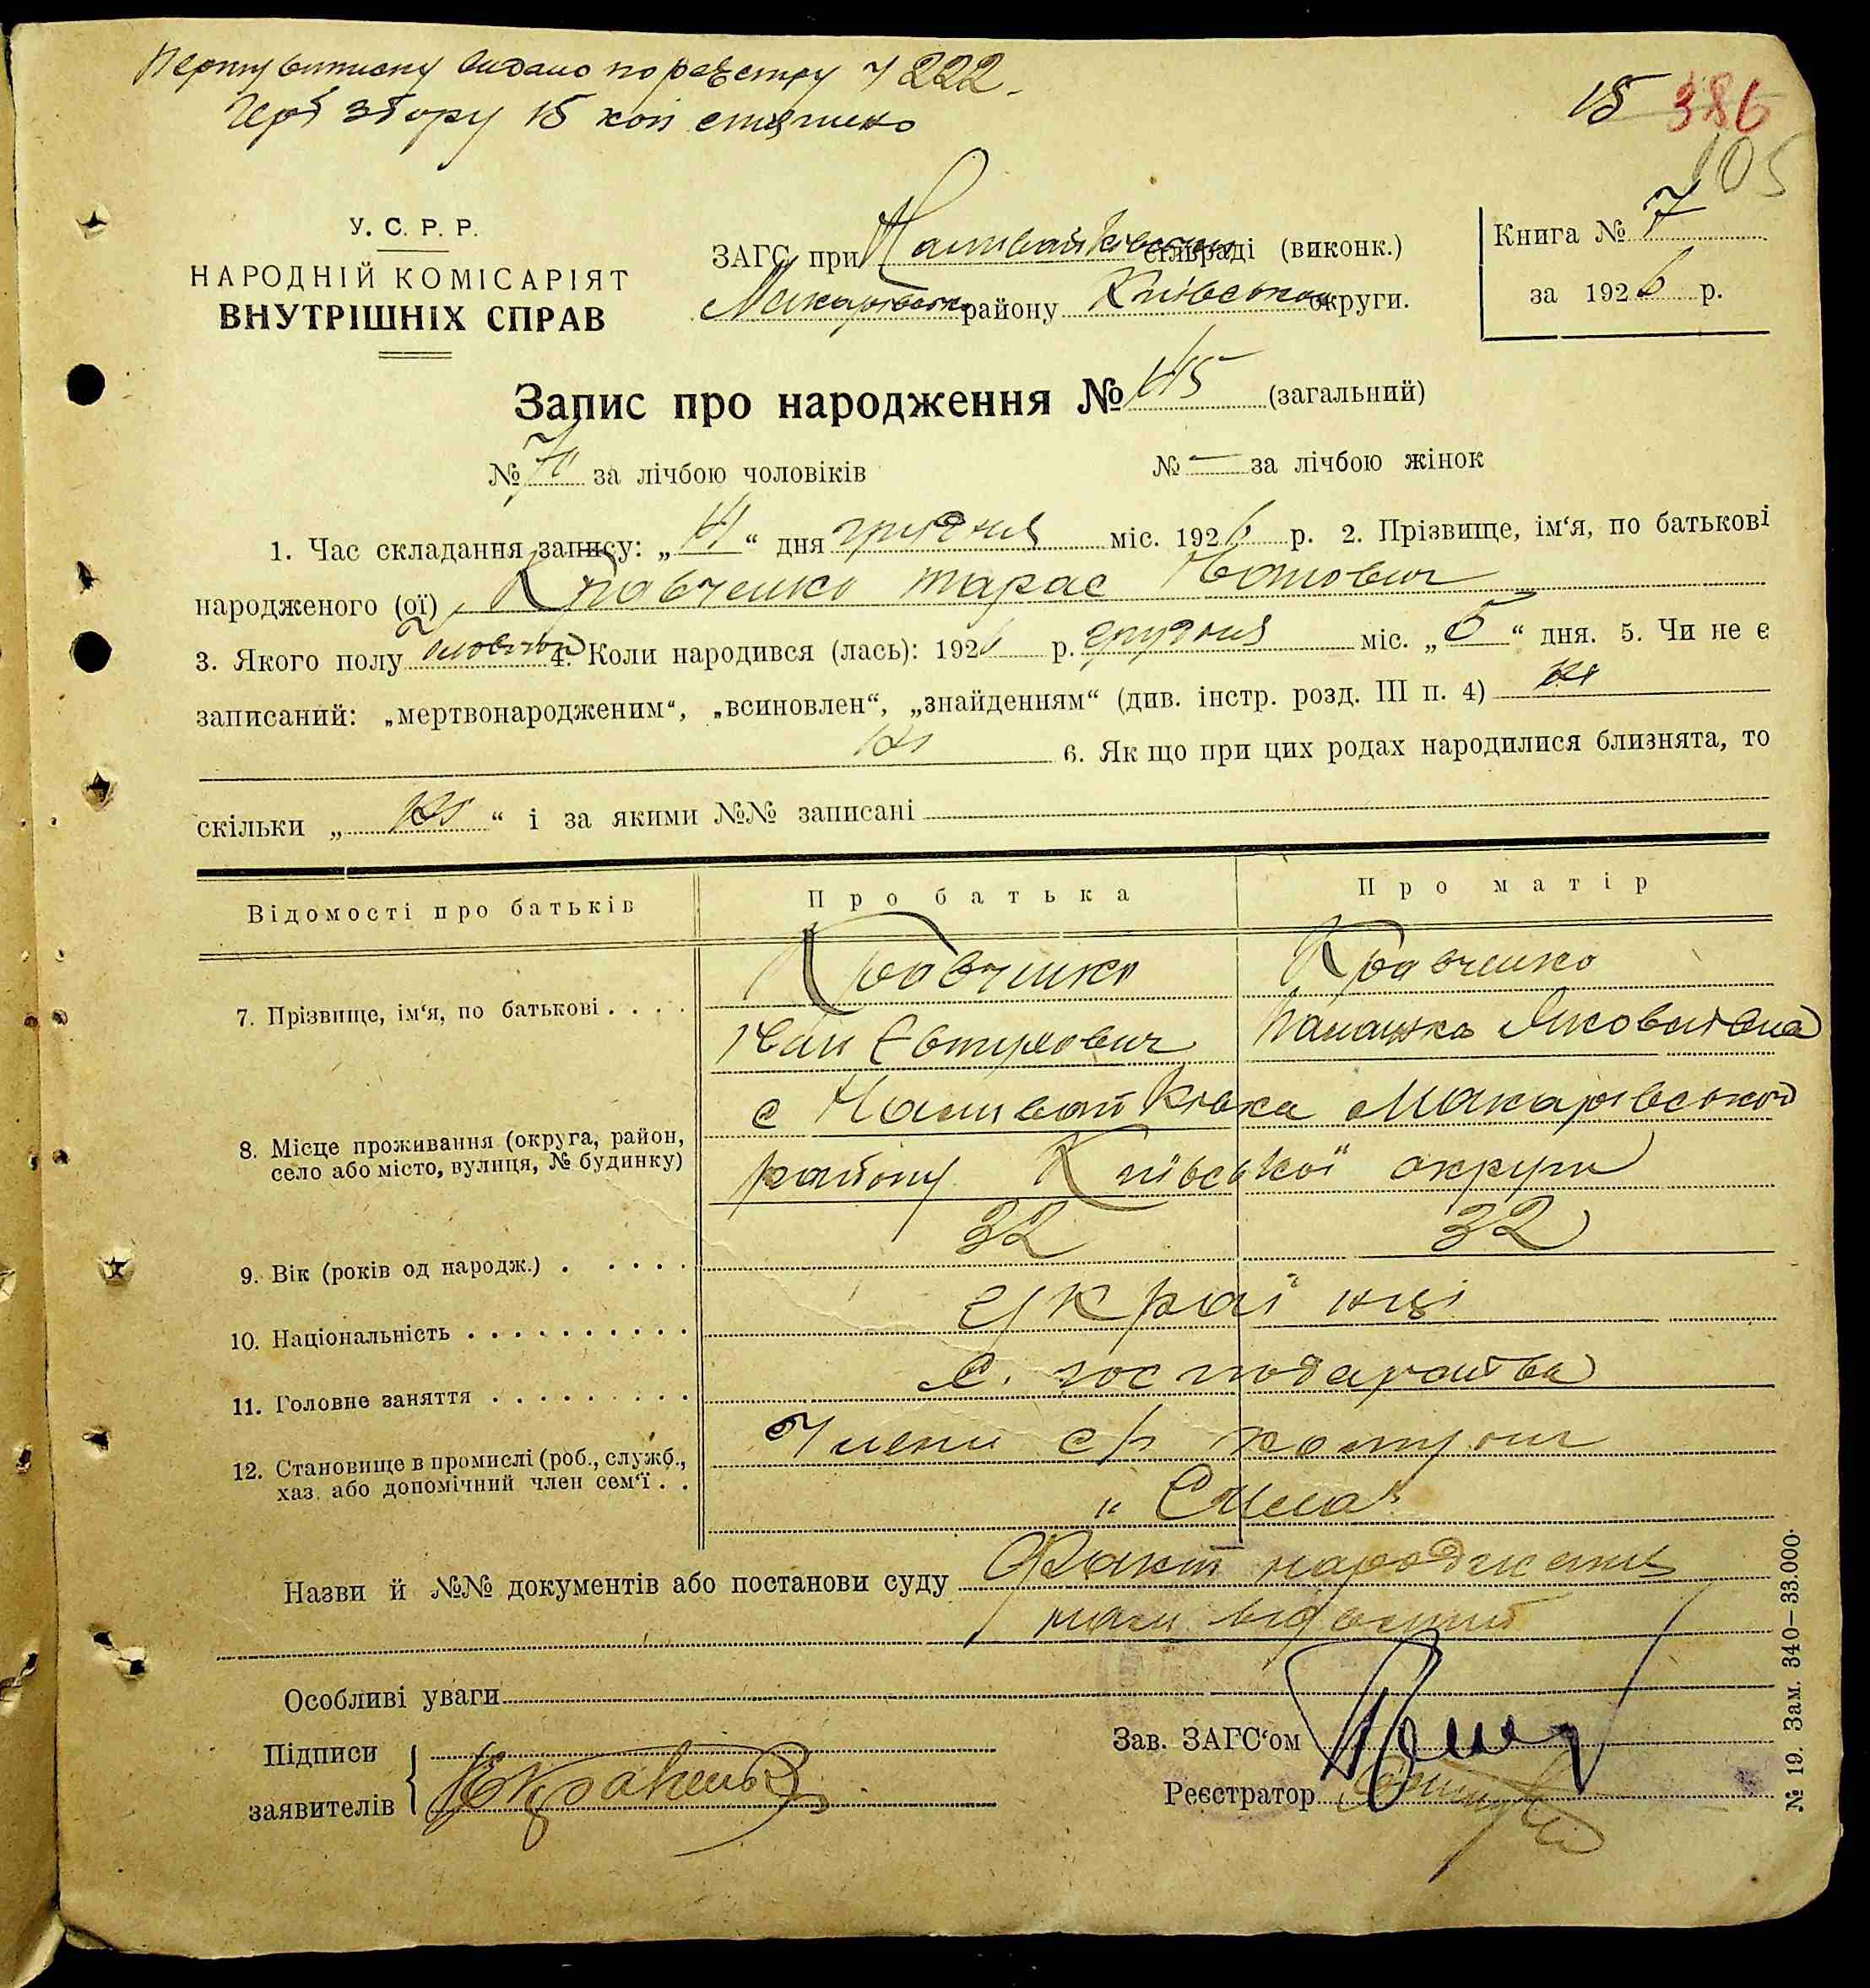 Першу виписку видано по реєстру № 222.
Герб збору 15 коп стягнено
15 386
105
У. С. Р. Р.
НАРОДНІЙ КОМІСАРІЯТ
ВНУТРІШНІХ СПРАВ
ЗАГС при Наливайківській сільраді (виконк.)
Макарівськ району Київської округи.
Книга № 7
за 1926 р.
Запис про народження № (загальний)
№ за лічбою чоловіків № — за лічбою жінок
1. Час складання запису: „ “ дня грудня міс. 1926 р. 2. Прізвище, ім‘я, по батькові
народженого (ої) Кравченко Тарас Іванович
3. Якого полу чоловічої 4. Коли народився (лась): 1926 р. грудня міс. „5“ дня. 5. Чи не є
записаний: „мертвонародженим“, „всиновлен“, „знайденням“ (див. інстр. розд. III п. 4) ні
ні 6. Як що при цих родах народилися близнята, то
скільки „ ні “ і за якими №№ записані
Відомості про батьків Про батька Про матір
7. Прізвище, ім‘я, по батькові . . . . Кравченко Кравченко
Іван Яковлівна
8. Місце проживання (округа, район,
село або місто, вулиця, № будинку)
с Наливайківка Макарівської
району Київської округи
9. Вік (років од народж.) . . . . . 32 32
10. Національність . . . . . . . . . . українці
11. Головне заняття . . . . . . . . . С. господарства
12. Становище в промислі (роб., служб.,
хаз. або допомічний член сем‘ї . .
Члени с/г комуни
„
Назви й №№ документів або постанови суду Факт народження
нам відомий
Особливі уваги
Підписи
заявителів
Зав. ЗАГС‘ом
Реєстратор
№ 19. Зам. 340—33.000.